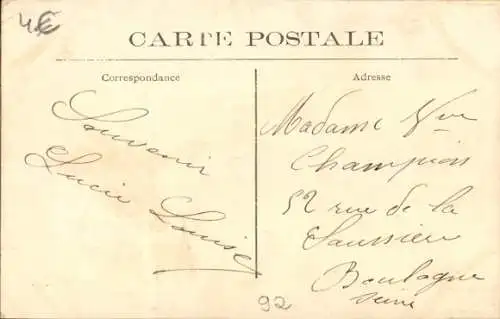 4€
CARTE POSTALE
Correspondance
Adresse
Souvenir
Lucie Louise
Madame Vve
Champion
52 rue de la
Saussière
Boulogne
Seine
92